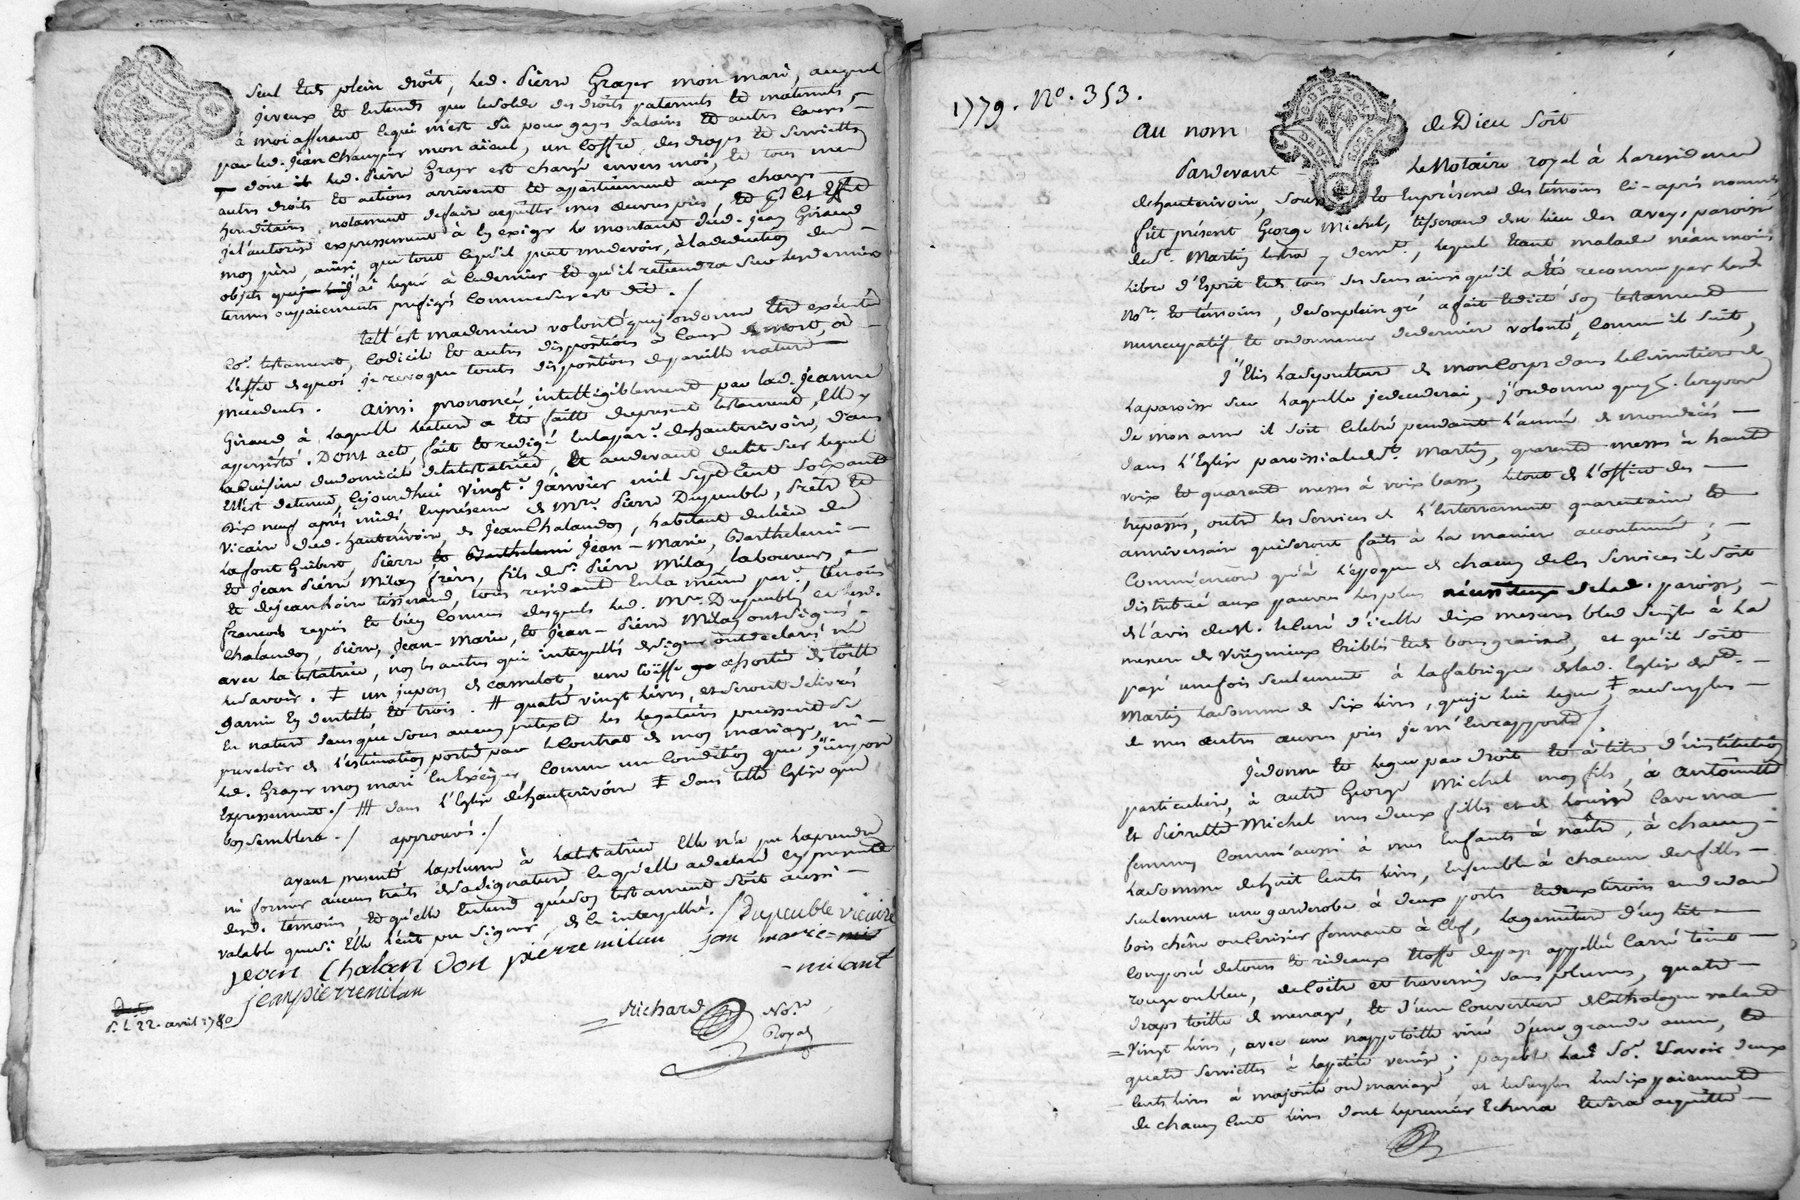 seul et de plein droit, led. Pierre Grayer mon mari, auquel
je veux et entends que le solde des droits paternels et maternels
à moi afferant le qui m'est dû pour gages salaires et autres causes
par led. jean Chauszier mon aïeul, un coffre, des draps et serviettes
dont led. Pierre Grayer est chargé envers moi, et tous mes
autres droits et actions arrivent et appartiennent aux charges
hereditaires, notament de faire acquitter mes œuvres pies, et à cet effet
je l'autorise expressement à en exiger le montant dud. jean Giraud
mon père, ainsi que tout ce qu'il peut me devoir, à la deduction des
objets que j'ai legué à ce dernier et qu'il retiendra sur les derniers
termes ou paiements prefigés comme dessus est dit ./
telle est ma derniere volonté que j'ordonne etre executée
testament, codicile et autres dispositions à cause de mort, à
l'effet de quoi je revoque toutes dispositions de pareille nature
precedentes. Ainsi prononcé intelligiblement par lad. jeanne
Giraud à laquelle lecture a été faitte du present testament, elle y
a persisté. Dont acte, fait et redigé en la par.e de hauterivoire, dans
la cuisine du domicile de la testatrice, et au devant du lit sur lequel
elle est detenue, cejourdhui vingt.e janvier mil sept cent soixante
dix neuf après midi en presence de M.re Pierre Dupeuble, Prêtre et
vicaire dud. hauterivoire, de jean Chalandon, habitant du lieu de
lafont Guibert, Pierre jean-Marie, Barthelemi
et jean Pierre Milan freres, fils de S.r Pierre Milan laboureurs
et de jean tisserand tous residants en la même par.e, temoins
francois requis et bien connus desquels led. M.re Dupeuble, led.
Chalandon, Pierre, jean-Marie, et jean-Pierre Milan ont signé,
avec la testatrice, non les autres qui interpellés de signer ont declaré ne
le savoir. ‡ un jupon de camelot, une coëffe aportée de toille
garnie en dentelle et trois. # quatre vingt livres, et seront delivrés
en nature sans que sous aucun pretexte les legataires puissent se
prevaloir de l'estimation portée par le contrat de mon mariage, ni
led. Grayer mon mari en exciper, comme une condition que j'impose
expressement ./ ### dans l'Eglise de hauterivoire ‡ dans telle Eglise que
bon semblera ./ approuvé ./
ayant presenté la plume à la testatrice elle n'a pu la prendre
ni former aucuns traits de sa signature ce qu'elle a declaré en presence
desd. temoins, et qu'elle entend que son testament soit aussi
valable que si elle l'eût pu signer, de ce interpellée. Dupeuble vicaire
jean Chalandon pierre milan jean marie
milant
jean pierre milan
22. avril 1780
Richard No.re
Royal
1779. No. 353.
Au nom de Dieu soit
Pardevant le Notaire royal à la residence
de hauterivoire, souss.é et en presence des temoins ci-après nommés
fut présent George Michel, tisserand du lieu des aveys, paroisse
de S.t Martin lestra y dem.t, lequel étant malade néanmoins
libre d'Esprit et de tous ses sens ainsi qu'il a été reconnu par led.
No.re et témoins, de son plein gré a fait et dicté son testament
nuncupatif et ordonnance de derniere volonté, comme il suit,
J'Elis la sepulture de mon corps dans le cimetiere de
la paroisse sur laquelle je decederai, j'ordonne que pour le repos
de mon ame il soit celebré pendant l'année de mon décès
dans l'Eglise paroissiale de S.t Martin, quarante messes à haute
voix et quarante messes à voix basse, le tout de l'office des
trepassés, outre les services de l'enterrement quarantaine et
anniversaire qui seront faits à la maniere accoutumée ;
comm'encore qu'à l'epoque de chacun de ces services il soit
distribué aux pauvres les plus necessiteux de lad. paroisse,
de l'avis de M. le curé d'icelle dix mesures bled seigle à la
mesure de virigneux criblés et de bons graines, et qu'il soit
payé une fois seulement à la fabrique de lad. Eglise de S.t
Martin la somme de six livres, que je lui legue ‡ au surplus
de mes autres œuvres pies je m'en rapporte ./
je donne et legue par droit et à titre d'institution
particuliere, à autre George Michel mon fils, à antoinette
et Pierrette Michel mes deux filles et de louise Cave ma
femme, comm'aussi à mes enfants à naître, à chacun
la somme de huit cents livres, ensemble à chacune des filles
seulement une garderobe à deux portes et deux tiroirs au dedans
bois chêne ou cerisier fermant à clef, la garniture d'un lit
composé de tours et rideaux étoffe de pays appellée carré teint
rouge ou bleu, de coitre et traversin sans plumes, quatre
draps toille de menage, et d'une couverture de Cathalogne valant
vingt livres, avec une nappe toille virée d'une grande aune, et
quatre serviettes à la petite venise ; payable lad. so.e savoir deux
cents livres à majorité ou mariage et le surplus en dix paiements
de chacun cent livres dont le premier echerra et sera acquitté